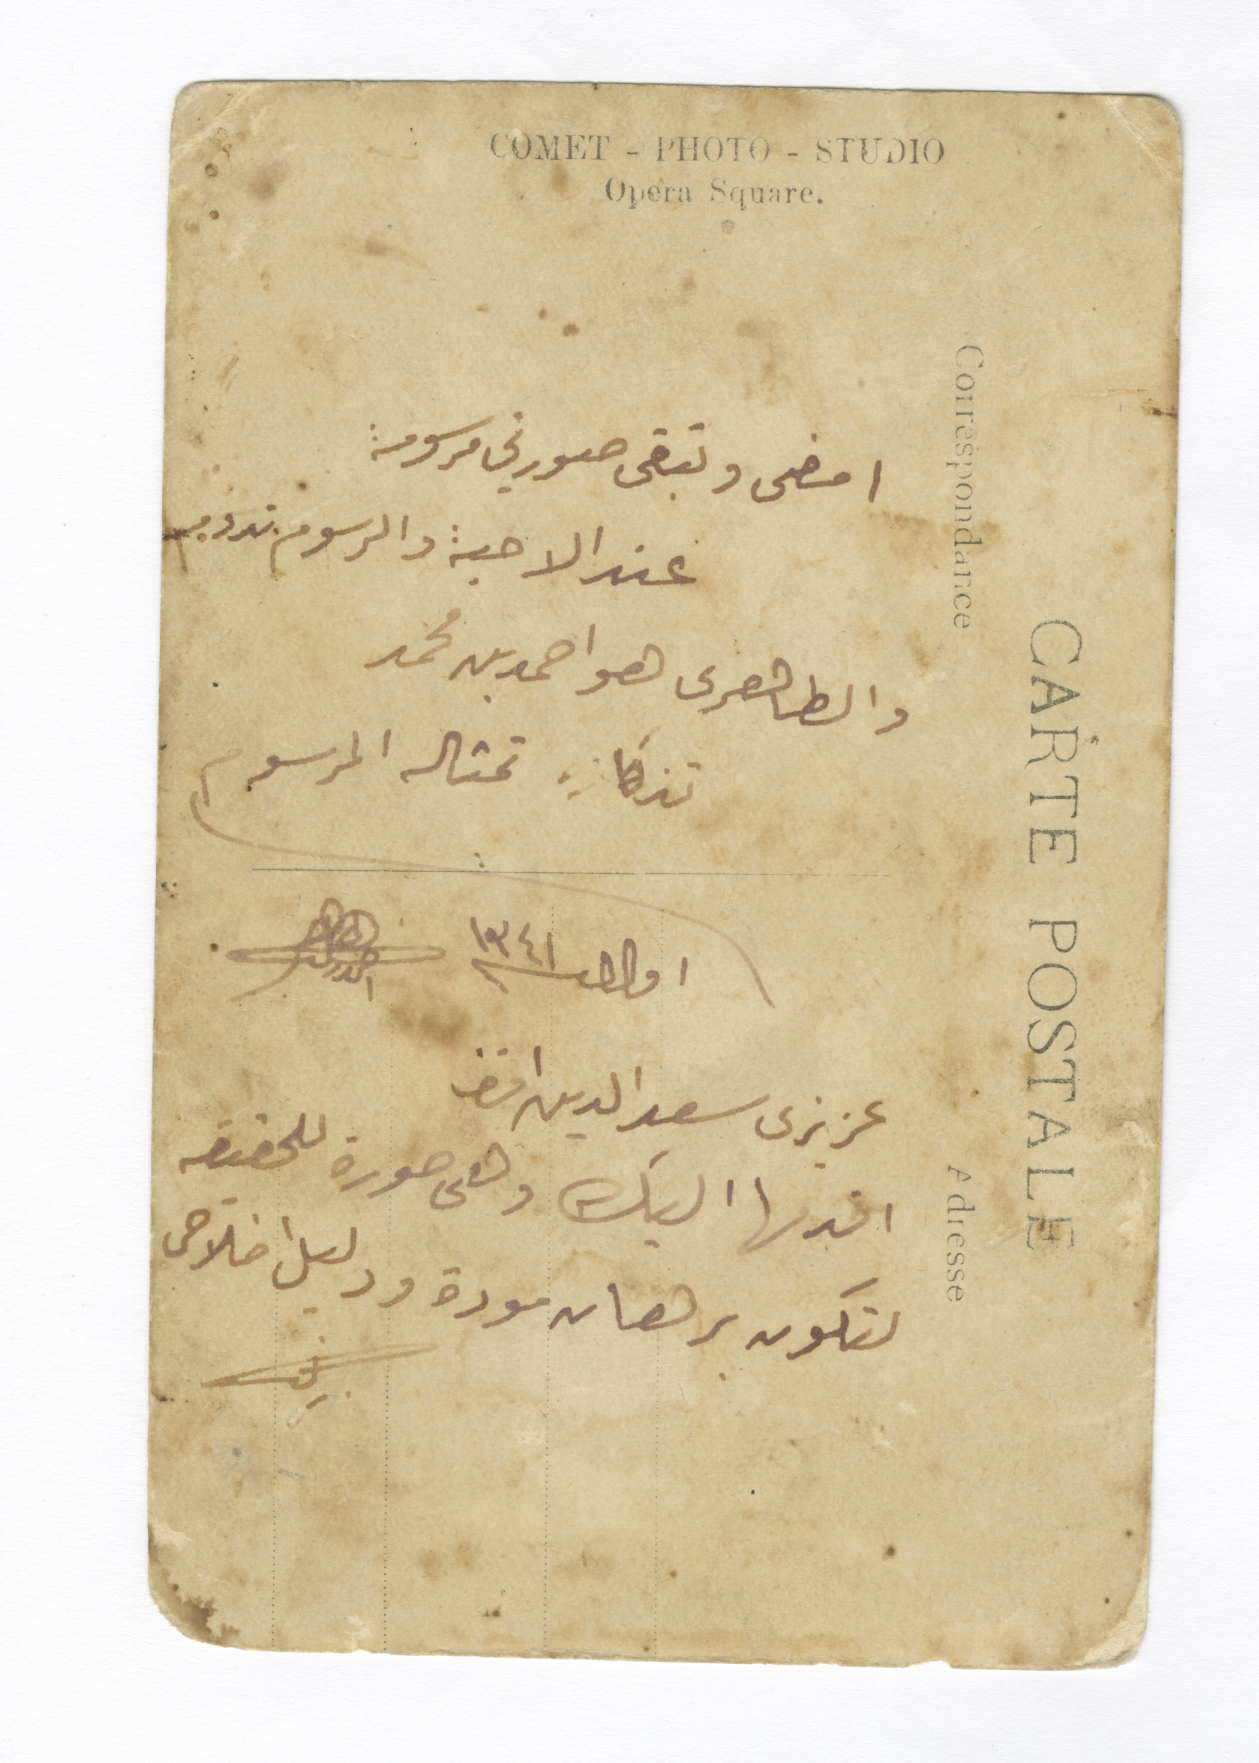 COMET - PHOTO - STUDIO
Opera Square.
Correspondance
CARTE POSTALE
Adresse
امضى وتبقى صورتي مرسومة
عند الاحبة والرسوم تدوم
والطاهرى هو احمد بن محمد
تذكاره تمثاله المرسوم
١٣٤١
عزيزى سعد الدين افندى
اقدمها اليك وهى صورة للحقيقه
لتكون برهان مودة ودليل اخلاص